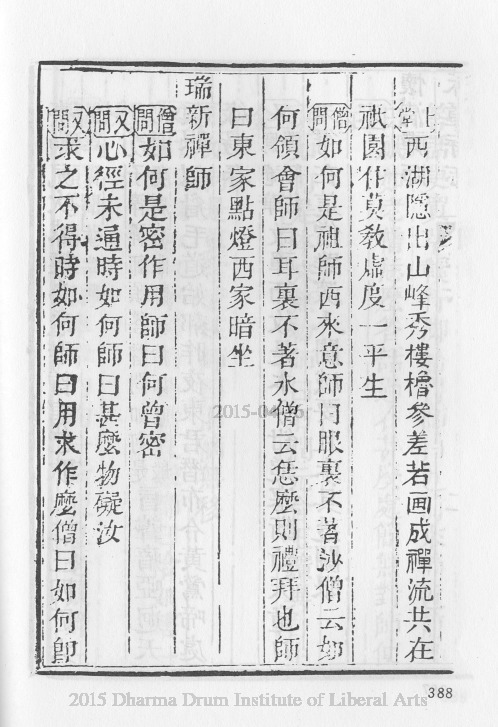 上堂西湖隱出山峰秀樓櫓參差若画成禪流共在
祇園住莫教虛度一平生
僧問如何是祖師西來意師曰眼裏不著沙僧云如
何領會師曰耳裏不著水僧云恁麼則禮拜也師
曰東家點燈西家暗坐
瑞新禪師
僧問如何是密作用師曰何曾密
又問心經未通時如何師曰甚麼物礙汝
又問求之不得時如何師曰用求作麼僧曰如何卽
388
2015 Dharma Drum Institute of Liberal Arts